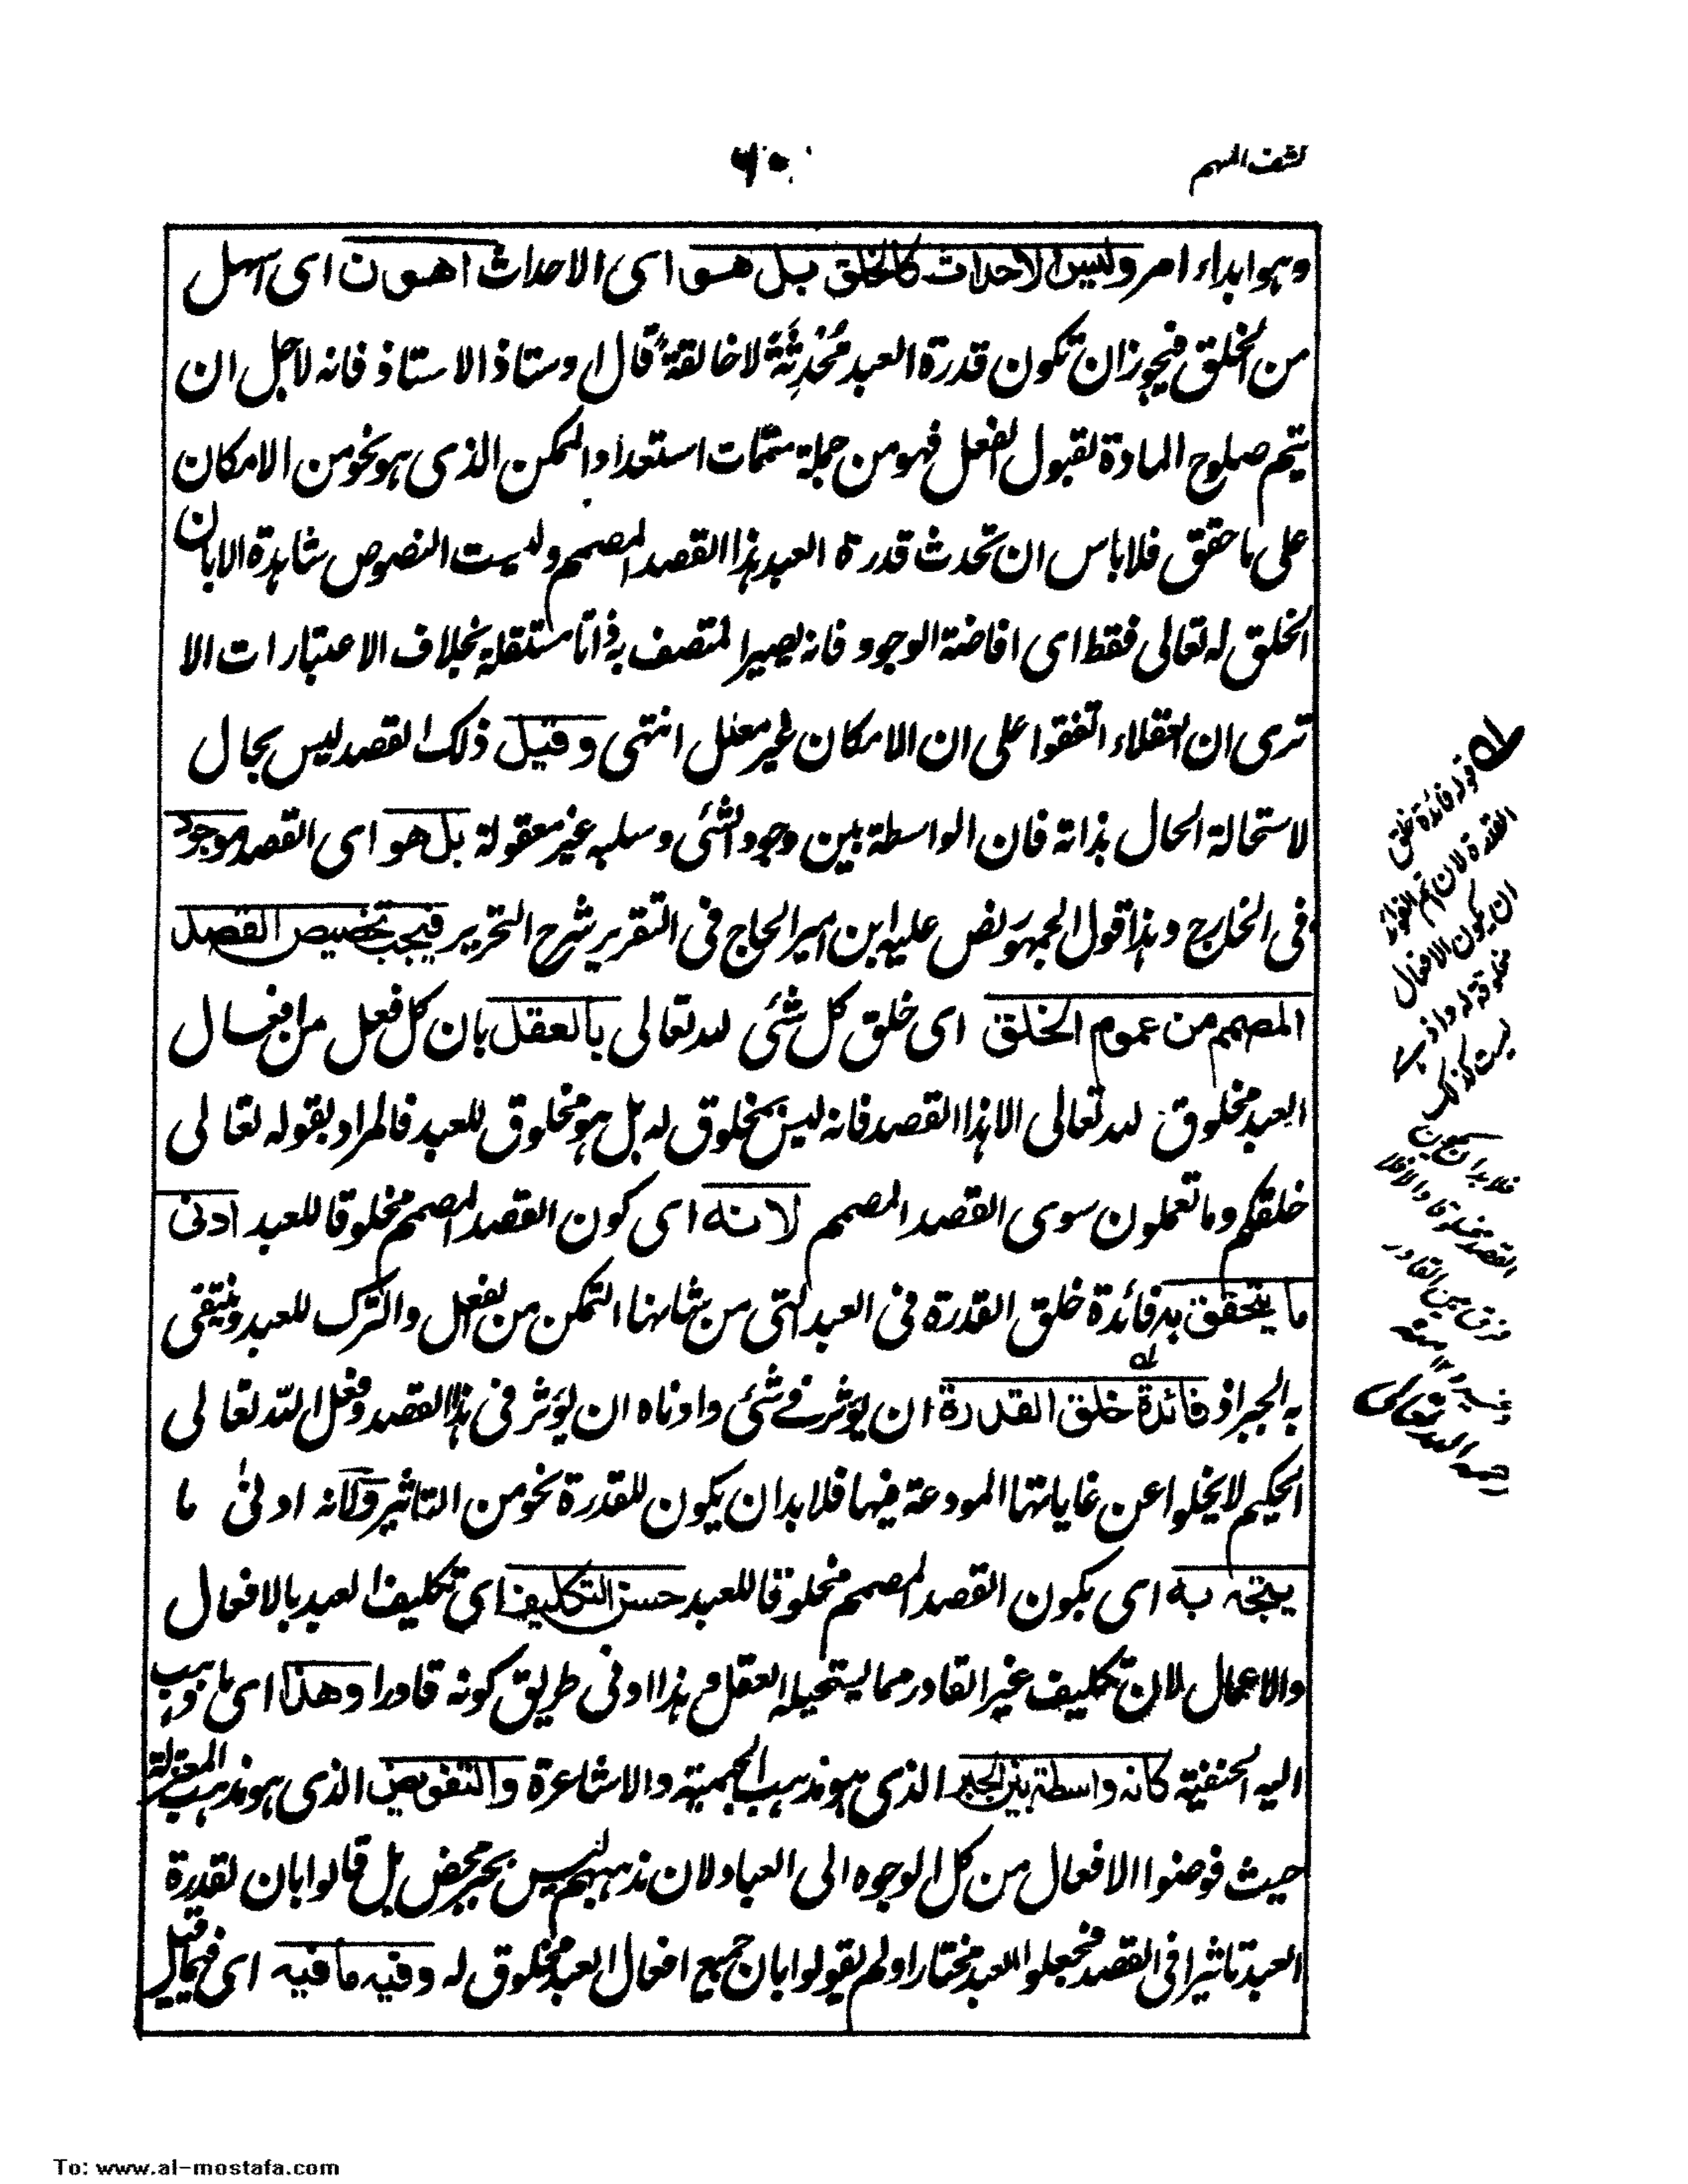 كشف المبهم
٦٠
وهو ابداء امر وليس الاحداث كالخلق بل هو اى الاحداث اهون اى اسهل
من الخلق فيجوز ان تكون قدرة العبد مُحْدِثَةً لا خالقةً قال اوستاذ الاستاذ فانه لاجل ان
يتم صلوح المادة لقبول الفعل فهو من جملة متممات استعداد الممكن الذى هو نحو من الامكان
على ما حقق فلا باس ان تحدث قدرة العبد هذا القصد المصمم وليست النصوص شاهدة الا بان
الخلق له تعالى فقط اى افاضة الوجود فانه يصير المتصف به ذاتا مستقلة بخلاف الاعتبارات الا
ترى ان العقلاء اتفقوا على ان الامكان غير معلل انتهى وقيل ذلك القصد ليس بحال
لاستحالة الحال بذاته فان الواسطة بين وجود الشئ وسلبه غير معقولة بل هو اى القصد موجود
فى الخارج وهذا قول الجمهور نص عليه ابن امير الحاج فى التقرير شرح التحرير فيجب تخصيص القصد
المصمم من عموم الخلق اى خلق كل شئ لله تعالى بالعقل بان كل فعل من افعال
العبد مخلوق لله تعالى الا هذا القصد فانه ليس بمخلوق له بل هو مخلوق للعبد فالمراد بقوله تعالى
خلقكم وما تعملون سوى القصد المصمم لانه اى كون القصد المصمم مخلوقا للعبد ادنى
ما يتحقق به فائدة خلق القدرة فى العبد التى من شانها التمكن من الفعل والترك للعبد وينتفى
به الجبر اذ فائدة خلق القدرة ان يؤثر فے شئ وادناه ان يؤثر فى هذا القصد وفعل الله تعالى
الحكيم لا يخلوا عن غاياتها المودعة فيها فلا بد ان يكون للقدرة نحو من التاثير وكانه ادنى ما
يتجه به اى بكون القصد المصمم مخلوقا للعبد حسن التكليف اى تكليف العبد بالافعال
والاعمال لان تكليف غير القادر مما يستحيله العقل وهذا ادنى طريق كونه قادرا وهذا اى ما ذهب
اليه الحنفية كانه واسطة بين الجبر الذى هو مذهب الجهمية والاشاعرة والتفويض الذى هو مذهب المعتزلة
حيث فوضوا الافعال من كل الوجوه الى العباد لان مذهبهم ليس بجبر محض بل قالوا بان لقدرة
العبد تاثيرا فى القصد فجعلوا العبد مختارا ولم يقولوا بان جميع افعال العبد مخلوق له وفيه ما فيه اى فيما قيل
له قوله فائدة خلق
القدرة لان اهم الفوائد
ان يكون الافعال
مخلوقة له واذ
ليست كذلك
فلا بد ان يكون
القصد مخلوقا والا فلا
فرق بين القادر
وغيره ١٢ منه
رحمه الله تعالى
To: www.al-mostafa.com